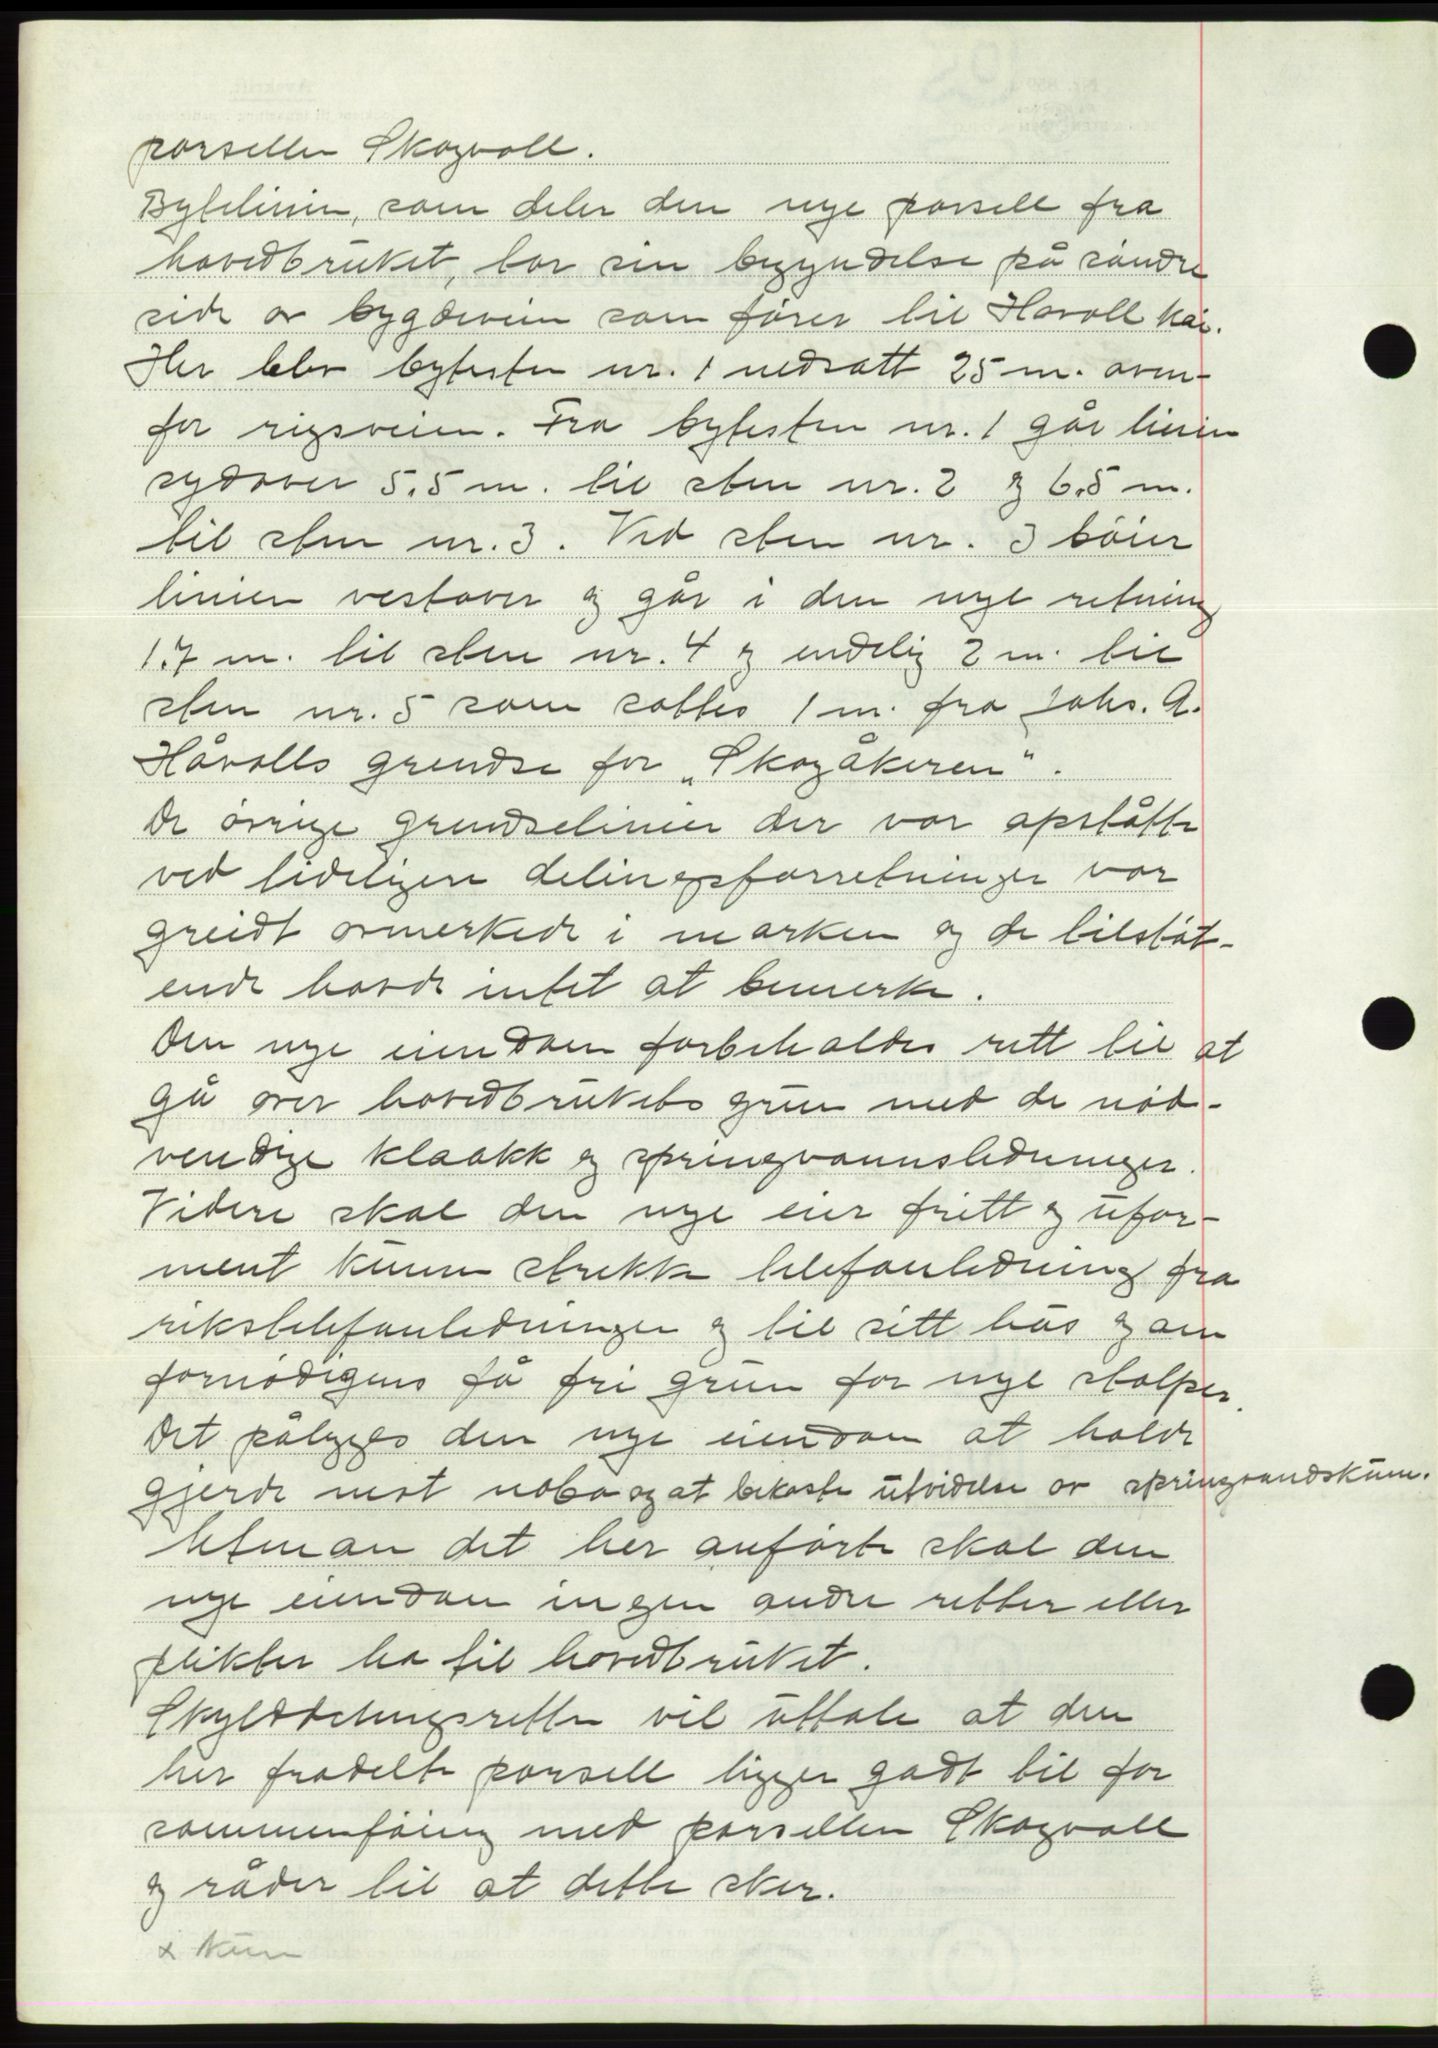 parsellen Skogvoll.
Bytelinien, som deler den nye parsell fra
hovedbruket, tar sin begyndelse på søndre
side av bygdeveien som fører til Håvoll kai.
Her blev bytesten nr. 1 nedsatt 25 m. oven-
for rigsveien. Fra bytesten nr. 1 går linien
sydover 5.5 m. til sten nr. 2 og 6.5 m.
til sten nr. 3. Ved sten nr. 3 bøier
linien vestover og går i den nye retning
1.7 m. til sten nr. 4 og endelig 2 m. til
sten nr. 5 som sattes 1 m. fra Johs. A.
Håvolls grendse for „Skogåkeren".
De øvrige grendselinier der var opståtte
ved tideligere delingsforretninger var
greidt avmerkede i marken og de tilstøt-
ende havde intet at bemerke.
Den nye eiendom forbeholdes rett til at
gå over hovedbrukets grun med de nød-
vendige kloakk og springvannsledninger.
Videre skal den nye eier fritt og ufor-
ment kunne strekke telefonledning fra
rikstelefonledningen og til sitt hus og om
fornødigens få fri grun for nye stolper.
Det pålegges den nye eiendom at holde
gjerde mot nabo og at bekoste utvidelse av springvandskum.
Utenom det her anførte skal den
nye eiendom ingen andre retter eller
plikter ha til hovedbruket.
Skylddelingsretten vil uttale at den
her fradelte parsell ligger godt til for
sammenføing med parsellen Skogvoll
og råder til at dette sker.
x kun